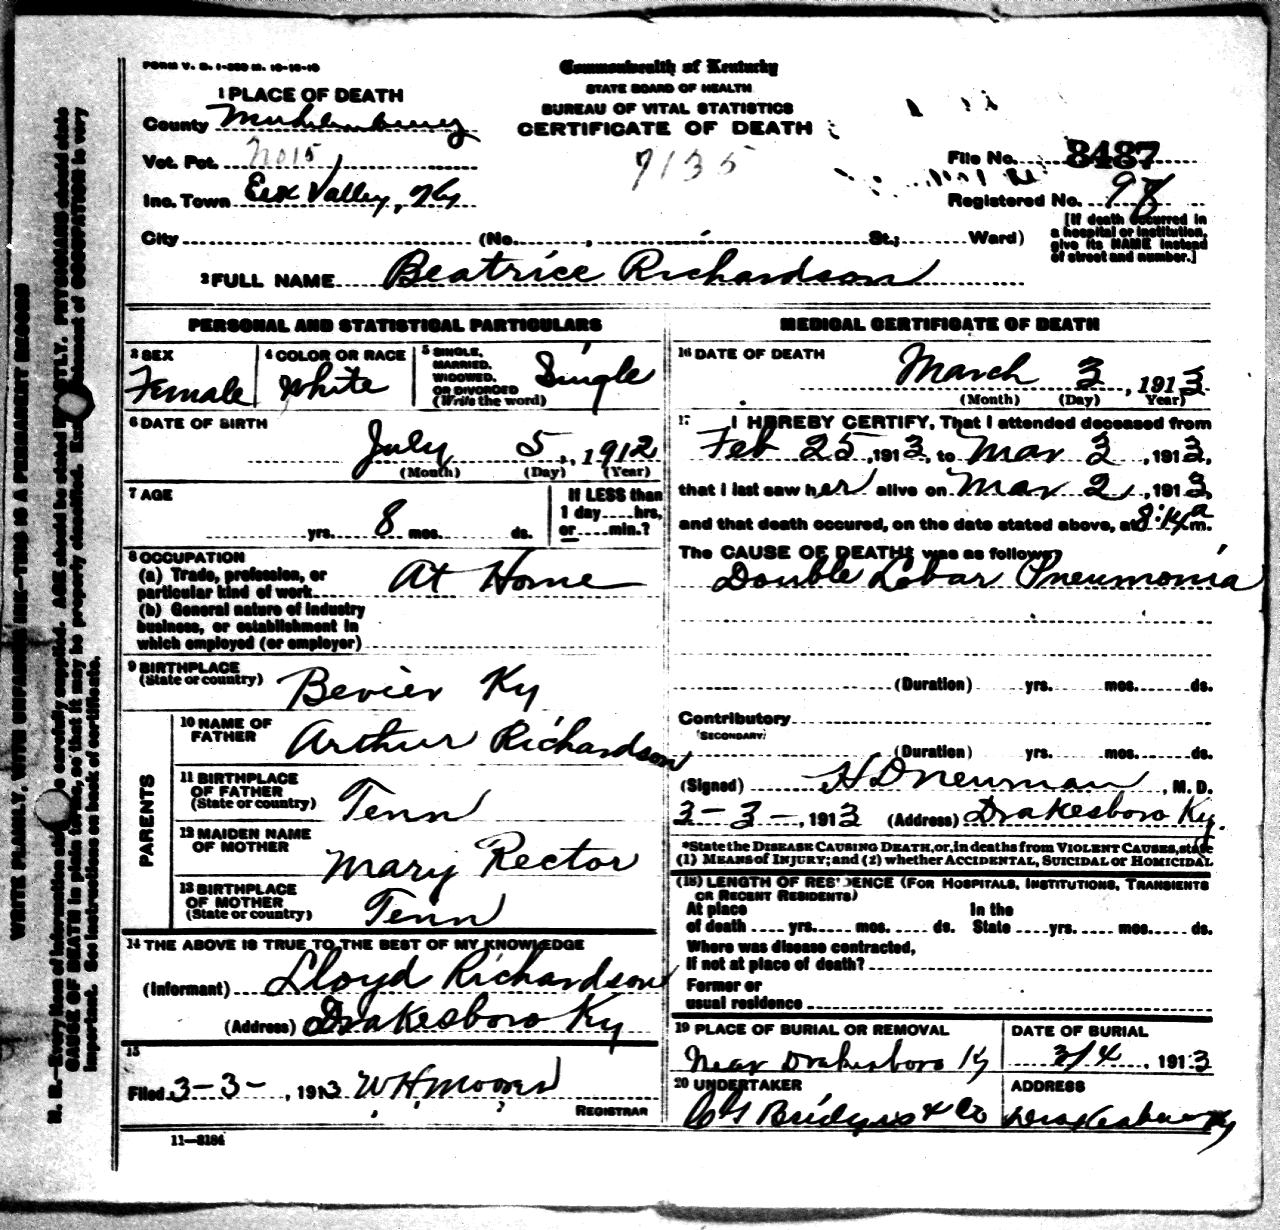 FORM V. S. 1-300 M. 10-16-10
Commonwealth of Kentucky
STATE BOARD OF HEALTH
BUREAU OF VITAL STATISTICS
CERTIFICATE OF DEATH
7135
1 PLACE OF DEATH
County Muhlenburg
Vot. Pct. No 15
Inc. Town Eux Valley, Ky
City (No. , St.; Ward)
File No. 8487
Registered No. 98
[If death occurred in
a hospital or institution,
give its NAME instead
of street and number.]
2 FULL NAME Beatrice Richardson
PERSONAL AND STATISTICAL PARTICULARS
3 SEX
Female
4 COLOR OR RACE
White
5 SINGLE,
MARRIED,
WIDOWED,
OR DIVORCED
(Write the word)
Single
6 DATE OF BIRTH
July 5, 1912
(Month) (Day) (Year)
7 AGE
yrs. 8 mos. ds.
If LESS than
1 day....hrs,
or....min.?
8 OCCUPATION
(a) Trade, profession, or
particular kind of work
At Home
(b) General nature of industry
business, or establishment in
which employed (or employer)
9 BIRTHPLACE
(State or country)
Bevier Ky
PARENTS
10 NAME OF
FATHER
Arthur Richardson
11 BIRTHPLACE
OF FATHER
(State or country)
Tenn
12 MAIDEN NAME
OF MOTHER
Mary Rector
13 BIRTHPLACE
OF MOTHER
(State or country)
Tenn
14 THE ABOVE IS TRUE TO THE BEST OF MY KNOWLEDGE
(Informant) Lloyd Richardson
(Address) Drakesboro Ky
15
Filed 3-3-, 1913 W H Moores
REGISTRAR
11-8184
MEDICAL CERTIFICATE OF DEATH
16 DATE OF DEATH
March 3, 1913
(Month) (Day) Year)
17 I HEREBY CERTIFY, That I attended deceased from
Feb 25, 1913, to Mar 3, 1913,
that I last saw her alive on Mar 2, 1913,
and that death occured, on the date stated above, at 8:14 a m.
The CAUSE OF DEATH* was as follows:
Double Lobar Pneumonia
(Duration) yrs. mos. ds.
Contributory
(SECONDARY)
(Duration) yrs. mos. ds.
(Signed) H D Newman, M. D.
3-3-, 1913 (Address) Drakesboro Ky.
*State the DISEASE CAUSING DEATH, or, in deaths from VIOLENT CAUSES, state
(1) MEANS OF INJURY; and (2) whether ACCIDENTAL, SUICIDAL or HOMICIDAL
(18) LENGTH OF RESIDENCE (FOR HOSPITALS, INSTITUTIONS, TRANSIENTS
OR RECENT RESIDENTS)
At place In the
of death yrs. mos. ds. State yrs. mos. ds.
Where was disease contracted,
if not at place of death?
Former or
usual residence
19 PLACE OF BURIAL OR REMOVAL
Near Drakesboro Ky
DATE OF BURIAL
3/4, 1913
20 UNDERTAKER
Bridges & Co
ADDRESS
Drakesboro Ky
WRITE PLAINLY, WITH UNFADING INK—THIS IS A PERMANENT RECORD
N. B.—Every item of information should be carefully supplied. AGE should be stated EXACTLY. PHYSICIANS should state
CAUSE OF DEATH in plain terms, so that it may be properly classified. Exact statement of OCCUPATION is very
important. See instructions on back of certificate.